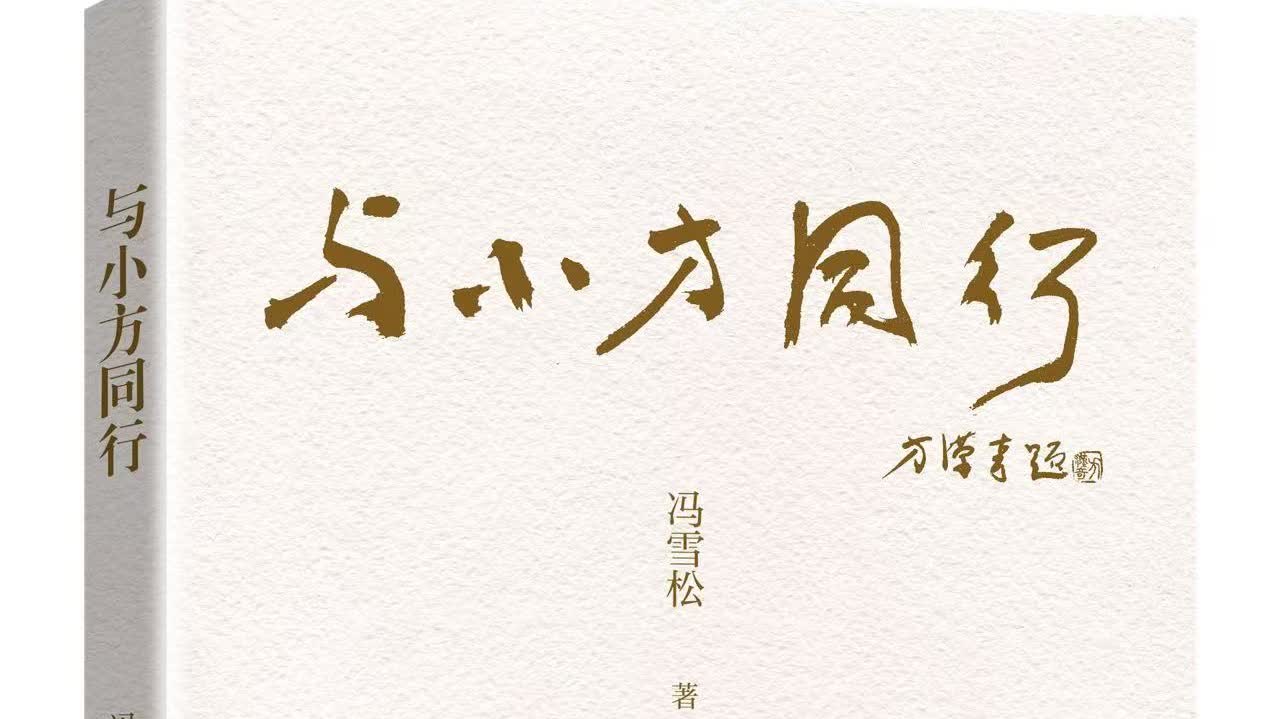 与小方同行
与小方同行
方汉奇题
冯雪松
著
冯